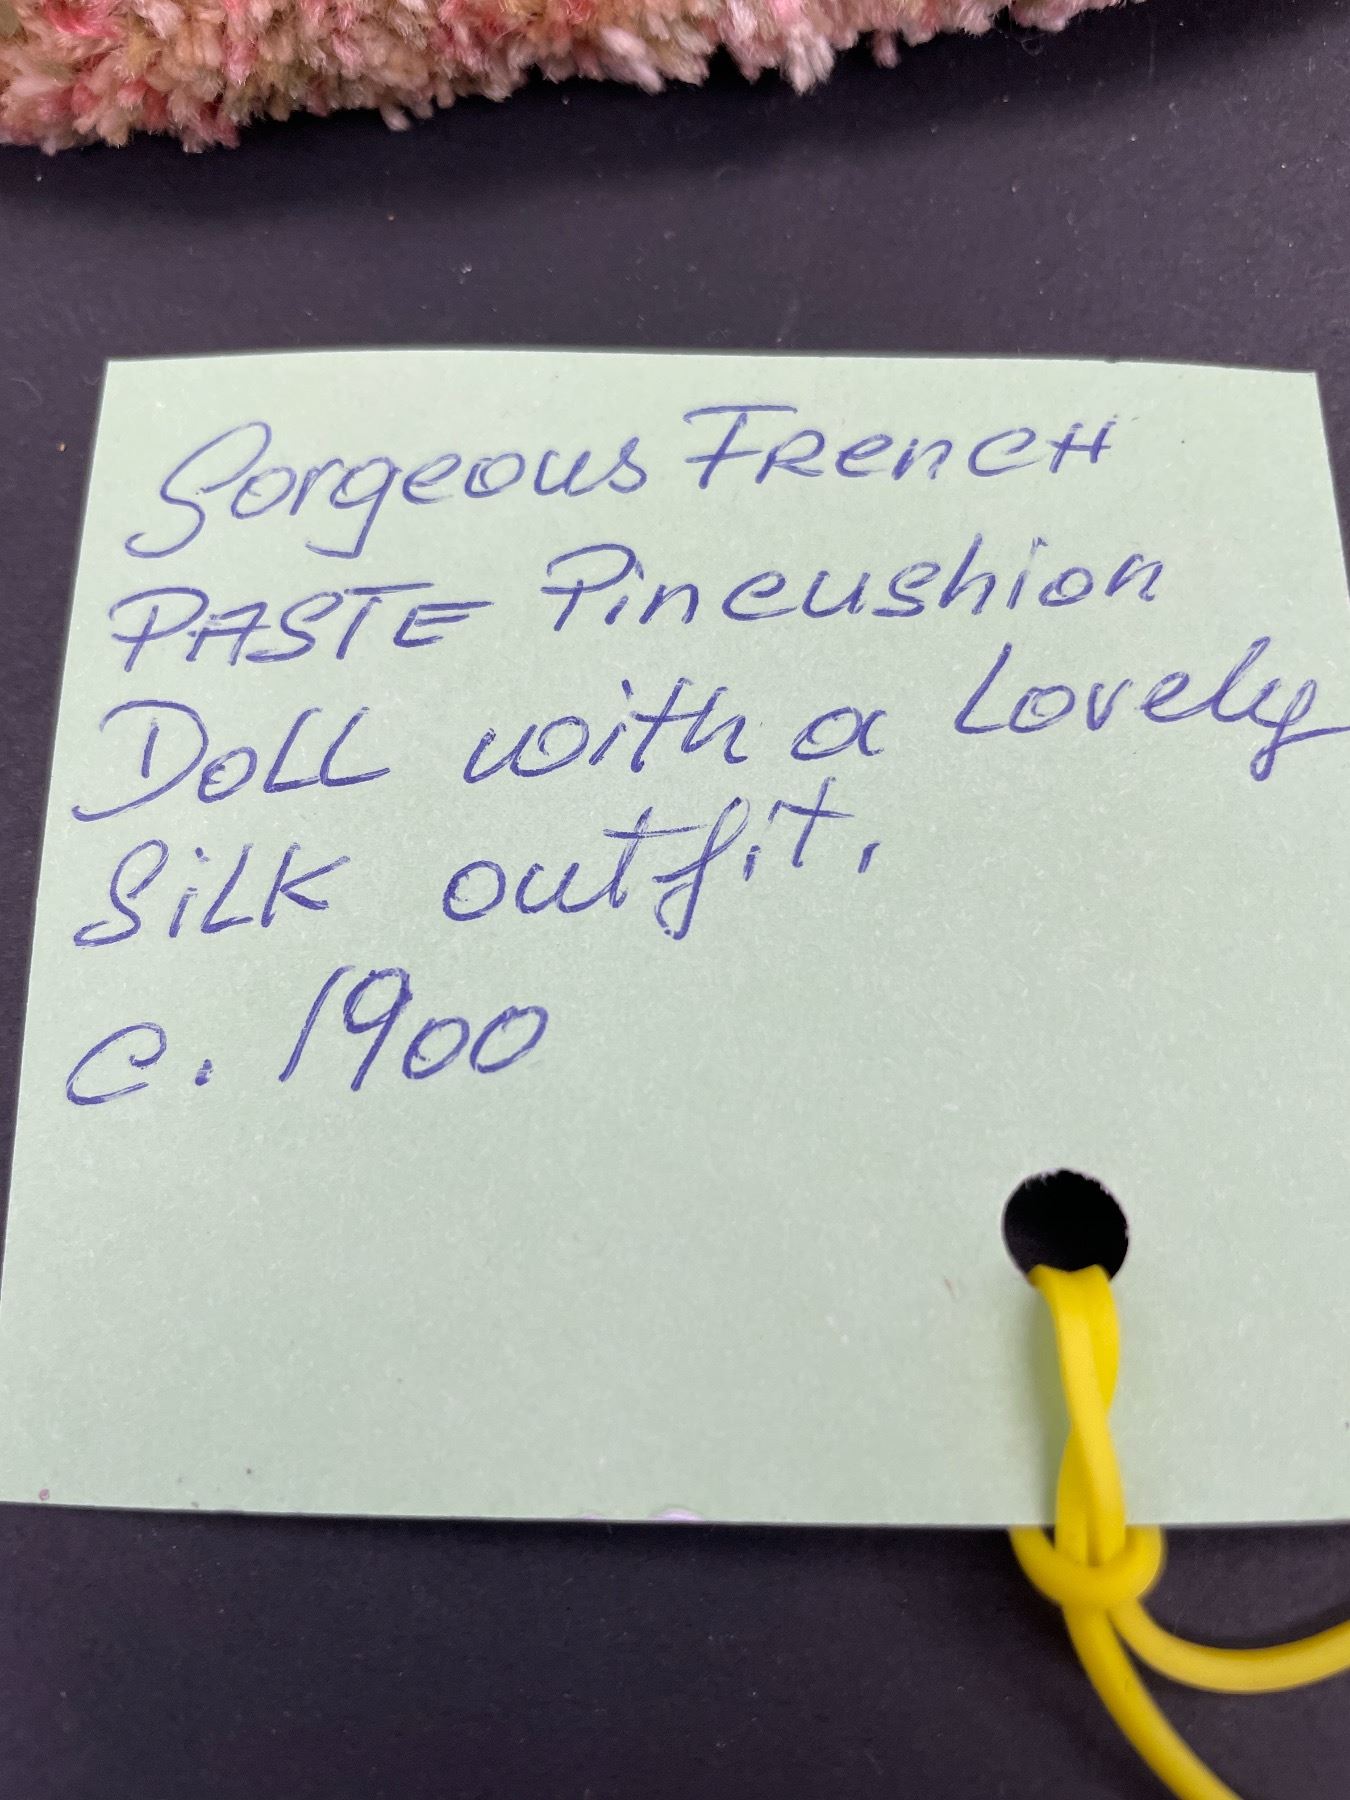 Gorgeous French
PASTE Pincushion
Doll with a Lovely
Silk outfit.
c. 1900